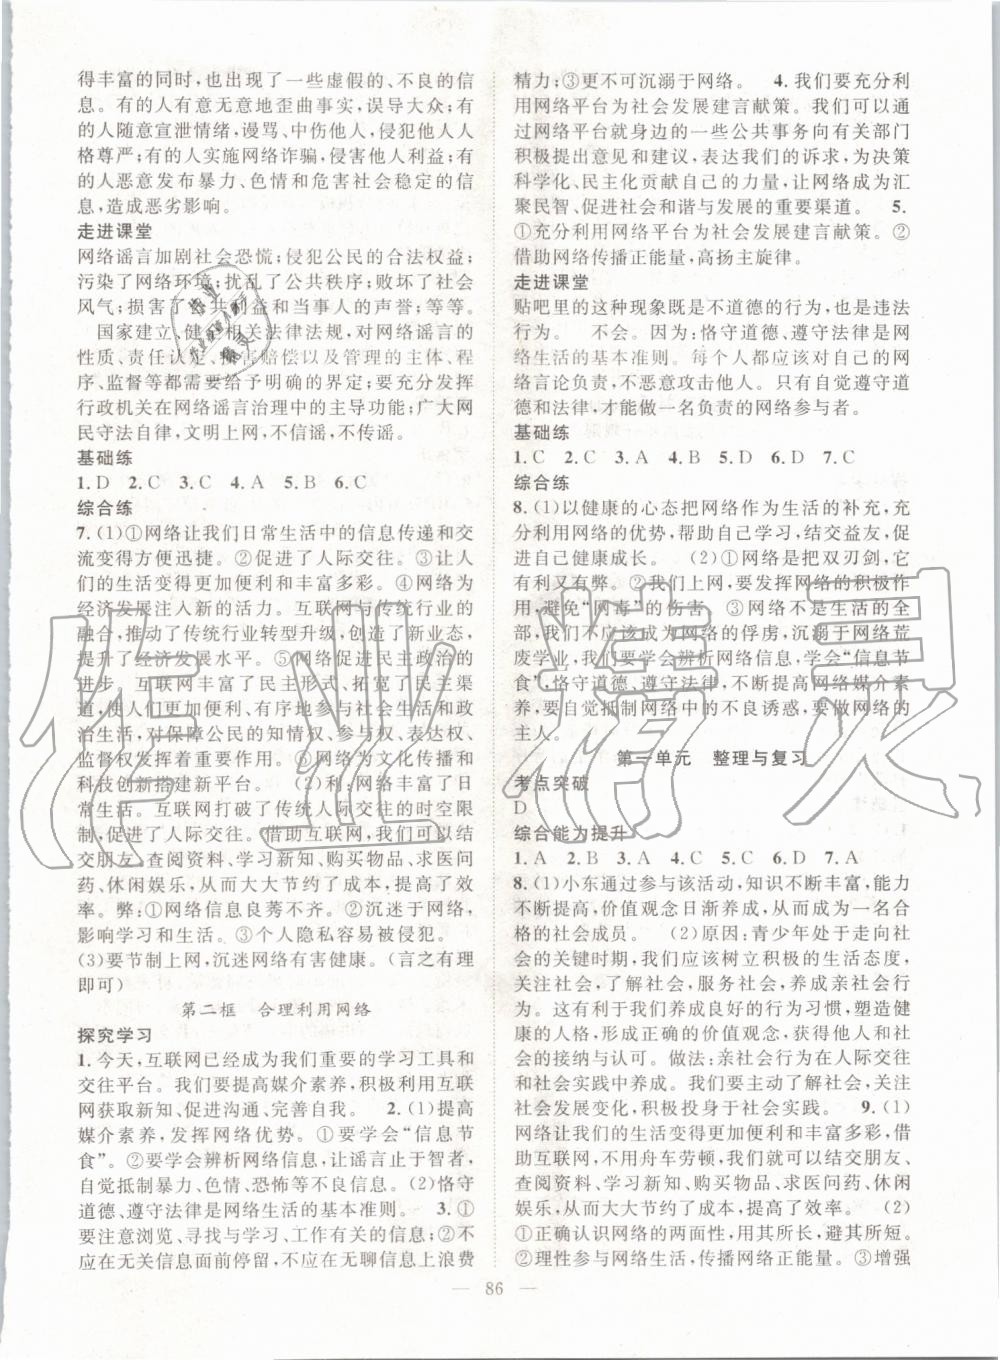 得丰富的同时,也出现了一些虚假的、不良的信
息。有的人有意无意地歪曲事实,误导大众;有
的人随意宣泄情绪,谩骂、中伤他人,侵犯他人人
格尊严;有的人实施网络诈骗,侵害他人利益;有
的人恶意发布暴力、色情和危害社会稳定的信
息,造成恶劣影响。
走进课堂
网络谣言加剧社会恐慌;侵犯公民的合法权益;
污染了网络环境;扰乱了公共秩序;败坏了社会
风气;损害了公共利益和当事人的声誉;等等。
国家建立、健全相关法律法规,对网络谣言的
性质、责任认定、损害赔偿以及管理的主体、程
序、监督等都需要给予明确的界定;要充分发挥
行政机关在网络谣言治理中的主导功能;广大网
民守法自律,文明上网,不信谣,不传谣。
基础练
1. D 2. C 3. C 4. A 5. B 6. C
综合练
7. (1)①网络让我们日常生活中的信息传递和交
流变得方便迅捷。②促进了人际交往。③让人
们的生活变得更加便利和丰富多彩。④网络为
经济发展注入新的活力。互联网与传统行业的
融合,推动了传统行业转型升级,创造了新业态,
提升了经济发展水平。⑤网络促进民主政治的
进步。互联网丰富了民主形式、拓宽了民主渠
道,使人们更加便利、有序地参与社会生活和政
治生活,对保障公民的知情权、参与权、表达权、
监督权发挥着重要作用。⑥网络为文化传播和
科技创新搭建新平台。 (2)利:网络丰富了日
常生活。互联网打破了传统人际交往的时空限
制,促进了人际交往。借助互联网,我们可以结
交朋友、查阅资料、学习新知、购买物品、求医问
药、休闲娱乐,从而大大节约了成本,提高了效
率。弊:①网络信息良莠不齐。②沉迷于网络,
影响学习和生活。③个人隐私容易被侵犯。
(3)要节制上网,沉迷网络有害健康。(言之有理
即可)
第二框 合理利用网络
探究学习
1. 今天,互联网已经成为我们重要的学习工具和
交往平台。我们要提高媒介素养,积极利用互联
网获取新知、促进沟通、完善自我。 2. (1)提高
媒介素养,发挥网络优势。①要学会“信息节
食”。②要学会辨析网络信息,让谣言止于智者,
自觉抵制暴力、色情、恐怖等不良信息。(2)恪守
道德、遵守法律是网络生活的基本准则。 3. ①
要注意浏览、寻找与学习、工作有关的信息;②不
应在无关信息面前停留,不应在无聊信息上浪费
精力;③更不可沉溺于网络。 4. 我们要充分利
用网络平台为社会发展建言献策。我们可以通
过网络平台就身边的一些公共事务向有关部门
积极提出意见和建议,表达我们的诉求,为决策
科学化、民主化贡献自己的力量,让网络成为汇
聚民智、促进社会和谐与发展的重要渠道。 5.
①充分利用网络平台为社会发展建言献策。②
借助网络传播正能量,高扬主旋律。
走进课堂
贴吧里的这种现象既是不道德的行为,也是违法
行为。 不会。因为:恪守道德、遵守法律是网
络生活的基本准则。每个人都应该对自己的网
络言论负责,不恶意攻击他人。只有自觉遵守道
德和法律,才能做一名负责的网络参与者。
基础练
1. C 2. C 3. A 4. B 5. D 6. D 7. C
综合练
8. (1)以健康的心态把网络作为生活的补充,充
分利用网络的优势,帮助自己学习,结交益友,促
进自己健康成长。 (2)①网络是把双刃剑,它
有利又有弊。②我们上网,要发挥网络的积极作
用,避免“网毒”的伤害。③网络不是生活的全
部,我们不应该成为网络的俘虏,沉溺于网络荒
废学业,我们要学会辨析网络信息,学会“信息节
食”,恪守道德、遵守法律,不断提高网络媒介素
养,要自觉抵制网络中的不良诱惑,要做网络的
主人。
第一单元 整理与复习
考点突破
D
综合能力提升
1. A 2. B 3. A 4. C 5. D 6. D 7. A
8. (1)小东通过参与该活动,知识不断丰富,能力
不断提高,价值观念日渐养成,从而成为一名合
格的社会成员。 (2)原因:青少年处于走向社
会的关键时期,我们应该树立积极的生活态度,
关注社会,了解社会,服务社会,养成亲社会行
为。这有利于我们养成良好的行为习惯,塑造健
康的人格,形成正确的价值观念,获得他人和社
会的接纳与认可。做法:亲社会行为在人际交往
和社会实践中养成。我们要主动了解社会,关注
社会发展变化,积极投身于社会实践。 9. (1)
网络让我们的生活变得更加便利和丰富多彩。借
助互联网,不用舟车劳顿,我们就可以结交朋友、
查阅资料、学习新知、购买物品、求医问药、休闲
娱乐,从而大大节约了成本,提高了效率。 (2)
①正确认识网络的两面性,用其所长,避其所短。
②理性参与网络生活,传播网络正能量。③增强
86
作业精灵